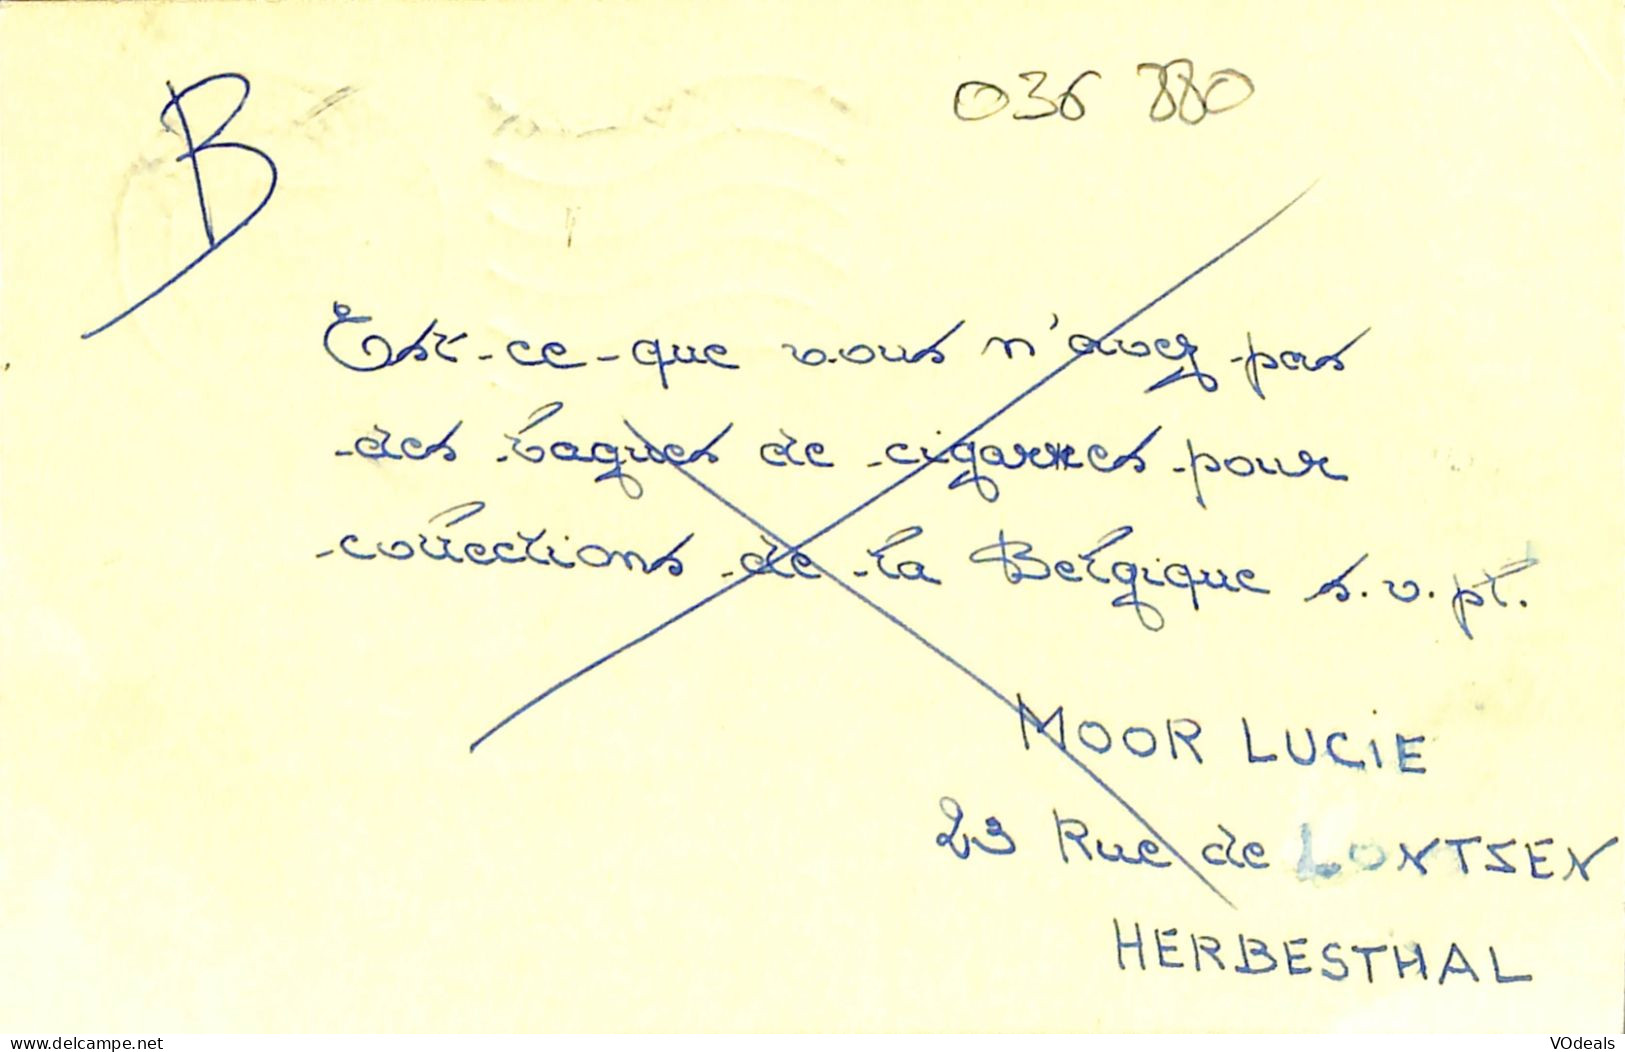 B
036 880
Est-ce-que vous n'avez pas
des bagues de cigares pour
collections de la Belgique s.v.pt.
MOOR LUCIE
23 Rue de LONTSEN
HERBESTHAL
www.delcampe.net
VOdeals